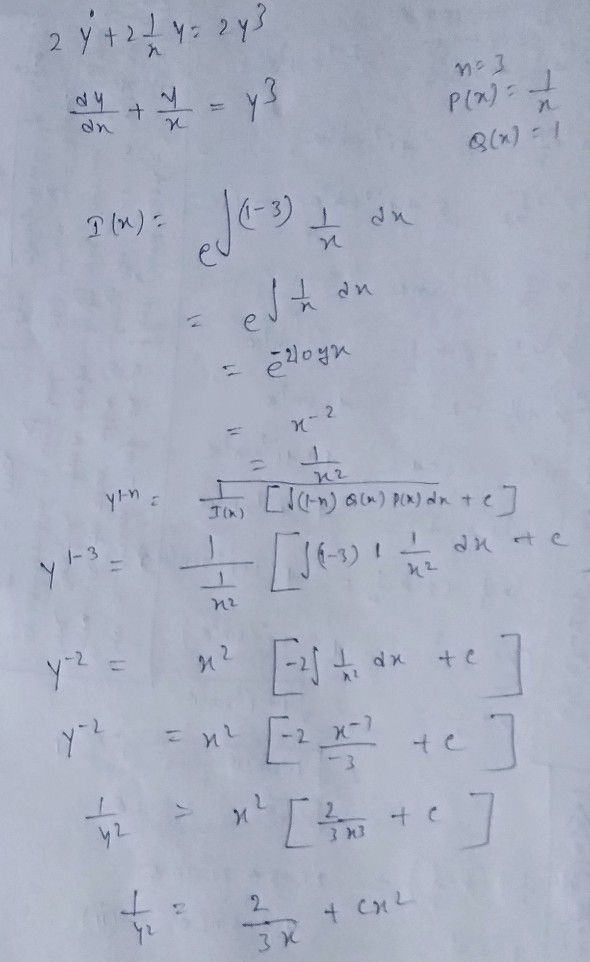 2 ẏ + 2 1/x y = 2y^3
dy/dx + y/x = y^3
n = 3
P(x) = 1/x
Q(x) = 1
I(x) = e^∫(1-3) 1/x dx
= e^∫ 1/x dx
= e^-2logx
= x^-2
= 1/x^2
y^1-n = 1/I(x) [∫(1-n) Q(x) P(x) dx + c]
y^1-3 = 1/(1/x^2) [∫(1-3) 1 1/x^2 dx + c
y^-2 = x^2 [-2∫ 1/x^2 dx + c]
y^-2 = x^2 [-2 x^-3/-3 + c]
1/y^2 = x^2 [2/3x^3 + c]
1/y^2 = 2/3x + cx^2